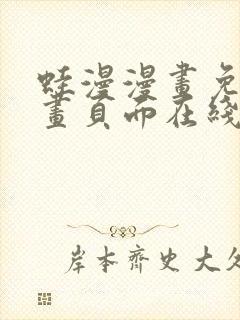 蛙漫漫畫免
畫頁面在綫
岸本齊史大久